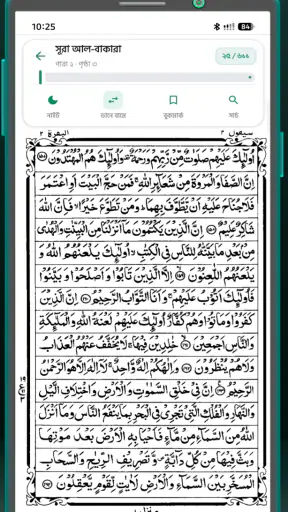 10:25
84
সুরা আল-বাকারা
পারা ২ · পৃষ্ঠা ৩
২৫ / ৬১১
নাইট
ডানে বামে
বুকমার্ক
সার্চ
البقرة ٢
سيقول ٢
أُولٰٓئِكَ عَلَيْهِمْ صَلَوٰتٌ مِّنْ رَّبِّهِمْ وَرَحْمَةٌ وَأُولٰٓئِكَ هُمُ الْمُهْتَدُوْنَ
إِنَّ الصَّفَا وَالْمَرْوَةَ مِنْ شَعَآئِرِ اللّٰهِ فَمَنْ حَجَّ الْبَيْتَ أَوِ اعْتَمَرَ
فَلَا جُنَاحَ عَلَيْهِ أَنْ يَّطَّوَّفَ بِهِمَا وَمَنْ تَطَوَّعَ خَيْرًا فَإِنَّ اللّٰهَ
شَاكِرٌ عَلِيْمٌ إِنَّ الَّذِيْنَ يَكْتُمُوْنَ مَآ أَنْزَلْنَا مِنَ الْبَيِّنٰتِ وَالْهُدٰى
مِنْ بَعْدِ مَا بَيَّنّٰهُ لِلنَّاسِ فِى الْكِتٰبِ أُولٰٓئِكَ يَلْعَنُهُمُ اللّٰهُ وَ
يَلْعَنُهُمُ اللّٰعِنُوْنَ إِلَّا الَّذِيْنَ تَابُوْا وَأَصْلَحُوْا وَبَيَّنُوْا
فَأُولٰٓئِكَ أَتُوْبُ عَلَيْهِمْ وَأَنَا التَّوَّابُ الرَّحِيْمُ إِنَّ الَّذِيْنَ
كَفَرُوْا وَمَاتُوْا وَهُمْ كُفَّارٌ أُولٰٓئِكَ عَلَيْهِمْ لَعْنَةُ اللّٰهِ وَالْمَلٰٓئِكَةِ
وَالنَّاسِ أَجْمَعِيْنَ خٰلِدِيْنَ فِيْهَا لَا يُخَفَّفُ عَنْهُمُ الْعَذَابُ
وَلَا هُمْ يُنْظَرُوْنَ وَإِلٰهُكُمْ إِلٰهٌ وَّاحِدٌ لَآ إِلٰهَ إِلَّا هُوَ الرَّحْمٰنُ
الرَّحِيْمُ إِنَّ فِيْ خَلْقِ السَّمٰوٰتِ وَالْأَرْضِ وَاخْتِلَافِ الَّيْلِ
وَالنَّهَارِ وَالْفُلْكِ الَّتِيْ تَجْرِيْ فِى الْبَحْرِ بِمَا يَنْفَعُ النَّاسَ وَمَآ أَنْزَلَ
اللّٰهُ مِنَ السَّمَآءِ مِنْ مَّآءٍ فَأَحْيَا بِهِ الْأَرْضَ بَعْدَ مَوْتِهَا
وَبَثَّ فِيْهَا مِنْ كُلِّ دَآبَّةٍ وَّتَصْرِيْفِ الرِّيٰحِ وَالسَّحَابِ
الْمُسَخَّرِ بَيْنَ السَّمَآءِ وَالْأَرْضِ لَاٰيٰتٍ لِّقَوْمٍ يَّعْقِلُوْنَ